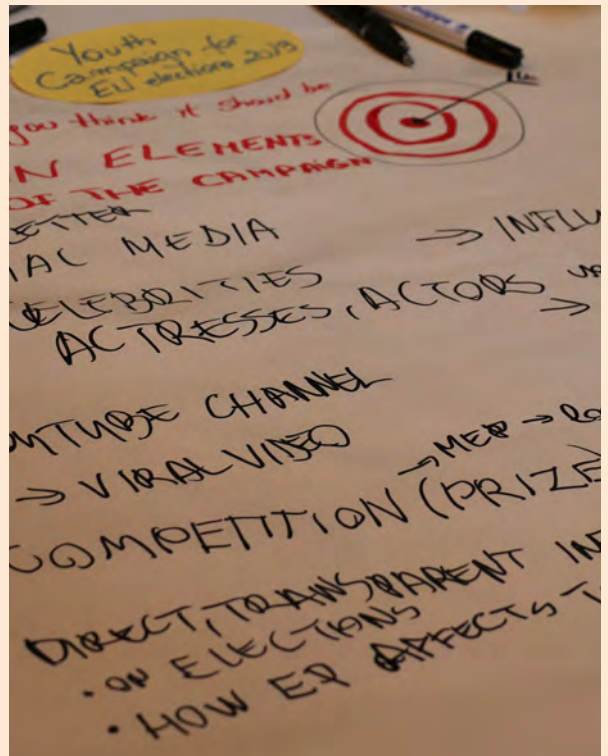 Youth
Campaign for
EU elections 2013
you think it should be
ELEMENTS
OF THE CAMPAIGN
LETTER
MEDIA
CELEBRITIES
ACTRESSES, ACTORS
CHANNEL
→ VIRAL VIDEO
→ MEP →
COMPETITION (PRIZE
DIRECT, TRANSPARENT
• ON ELECTIONS
• HOW EP AFFECTS